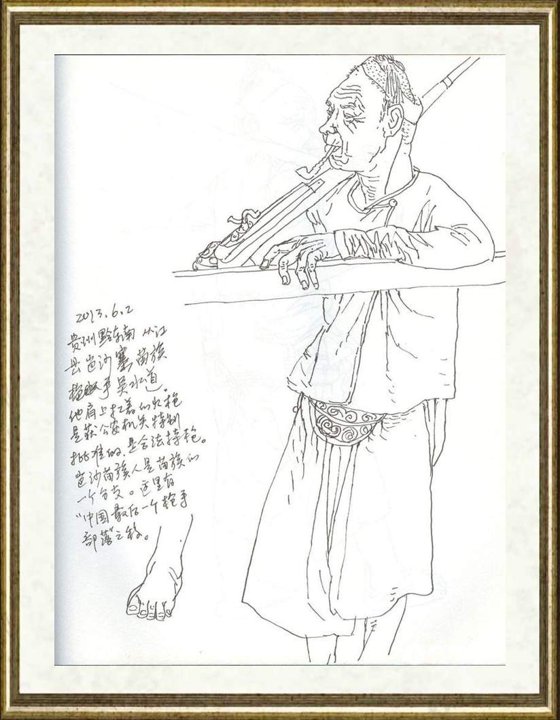 2013.6.2
贵州黔东南从江
县岜沙寨苗族
枪手吴水道。
他肩上扛着的火枪
是获公安机关特别
批准的,是合法持枪。
岜沙苗族人是苗族的
一个分支。这里有
“中国最后一个枪手
部落”之称。